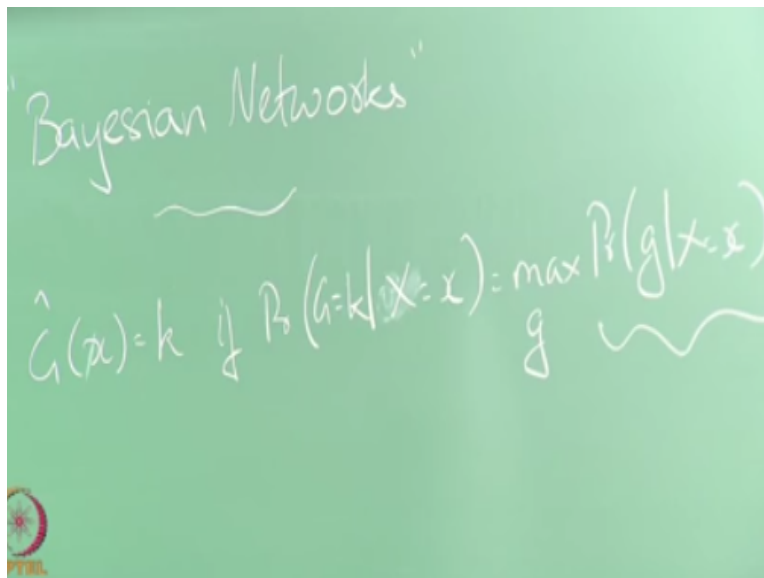 "Bayesian Networks"
Ĝ(x)=k if Pr(G=k|X=x)=max Pr(g|X=x)
g
PTEL